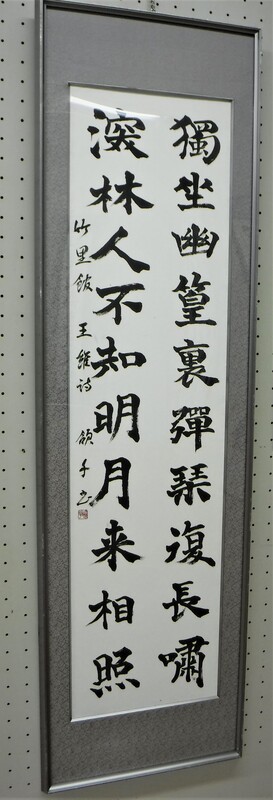 獨坐幽篁裏彈琴復長嘯
深林人不知明月来相照
竹里館 王維詩 頌千書